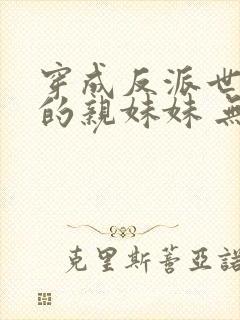 穿成反派世
的親妹妹 無
克里斯蒼亞諾